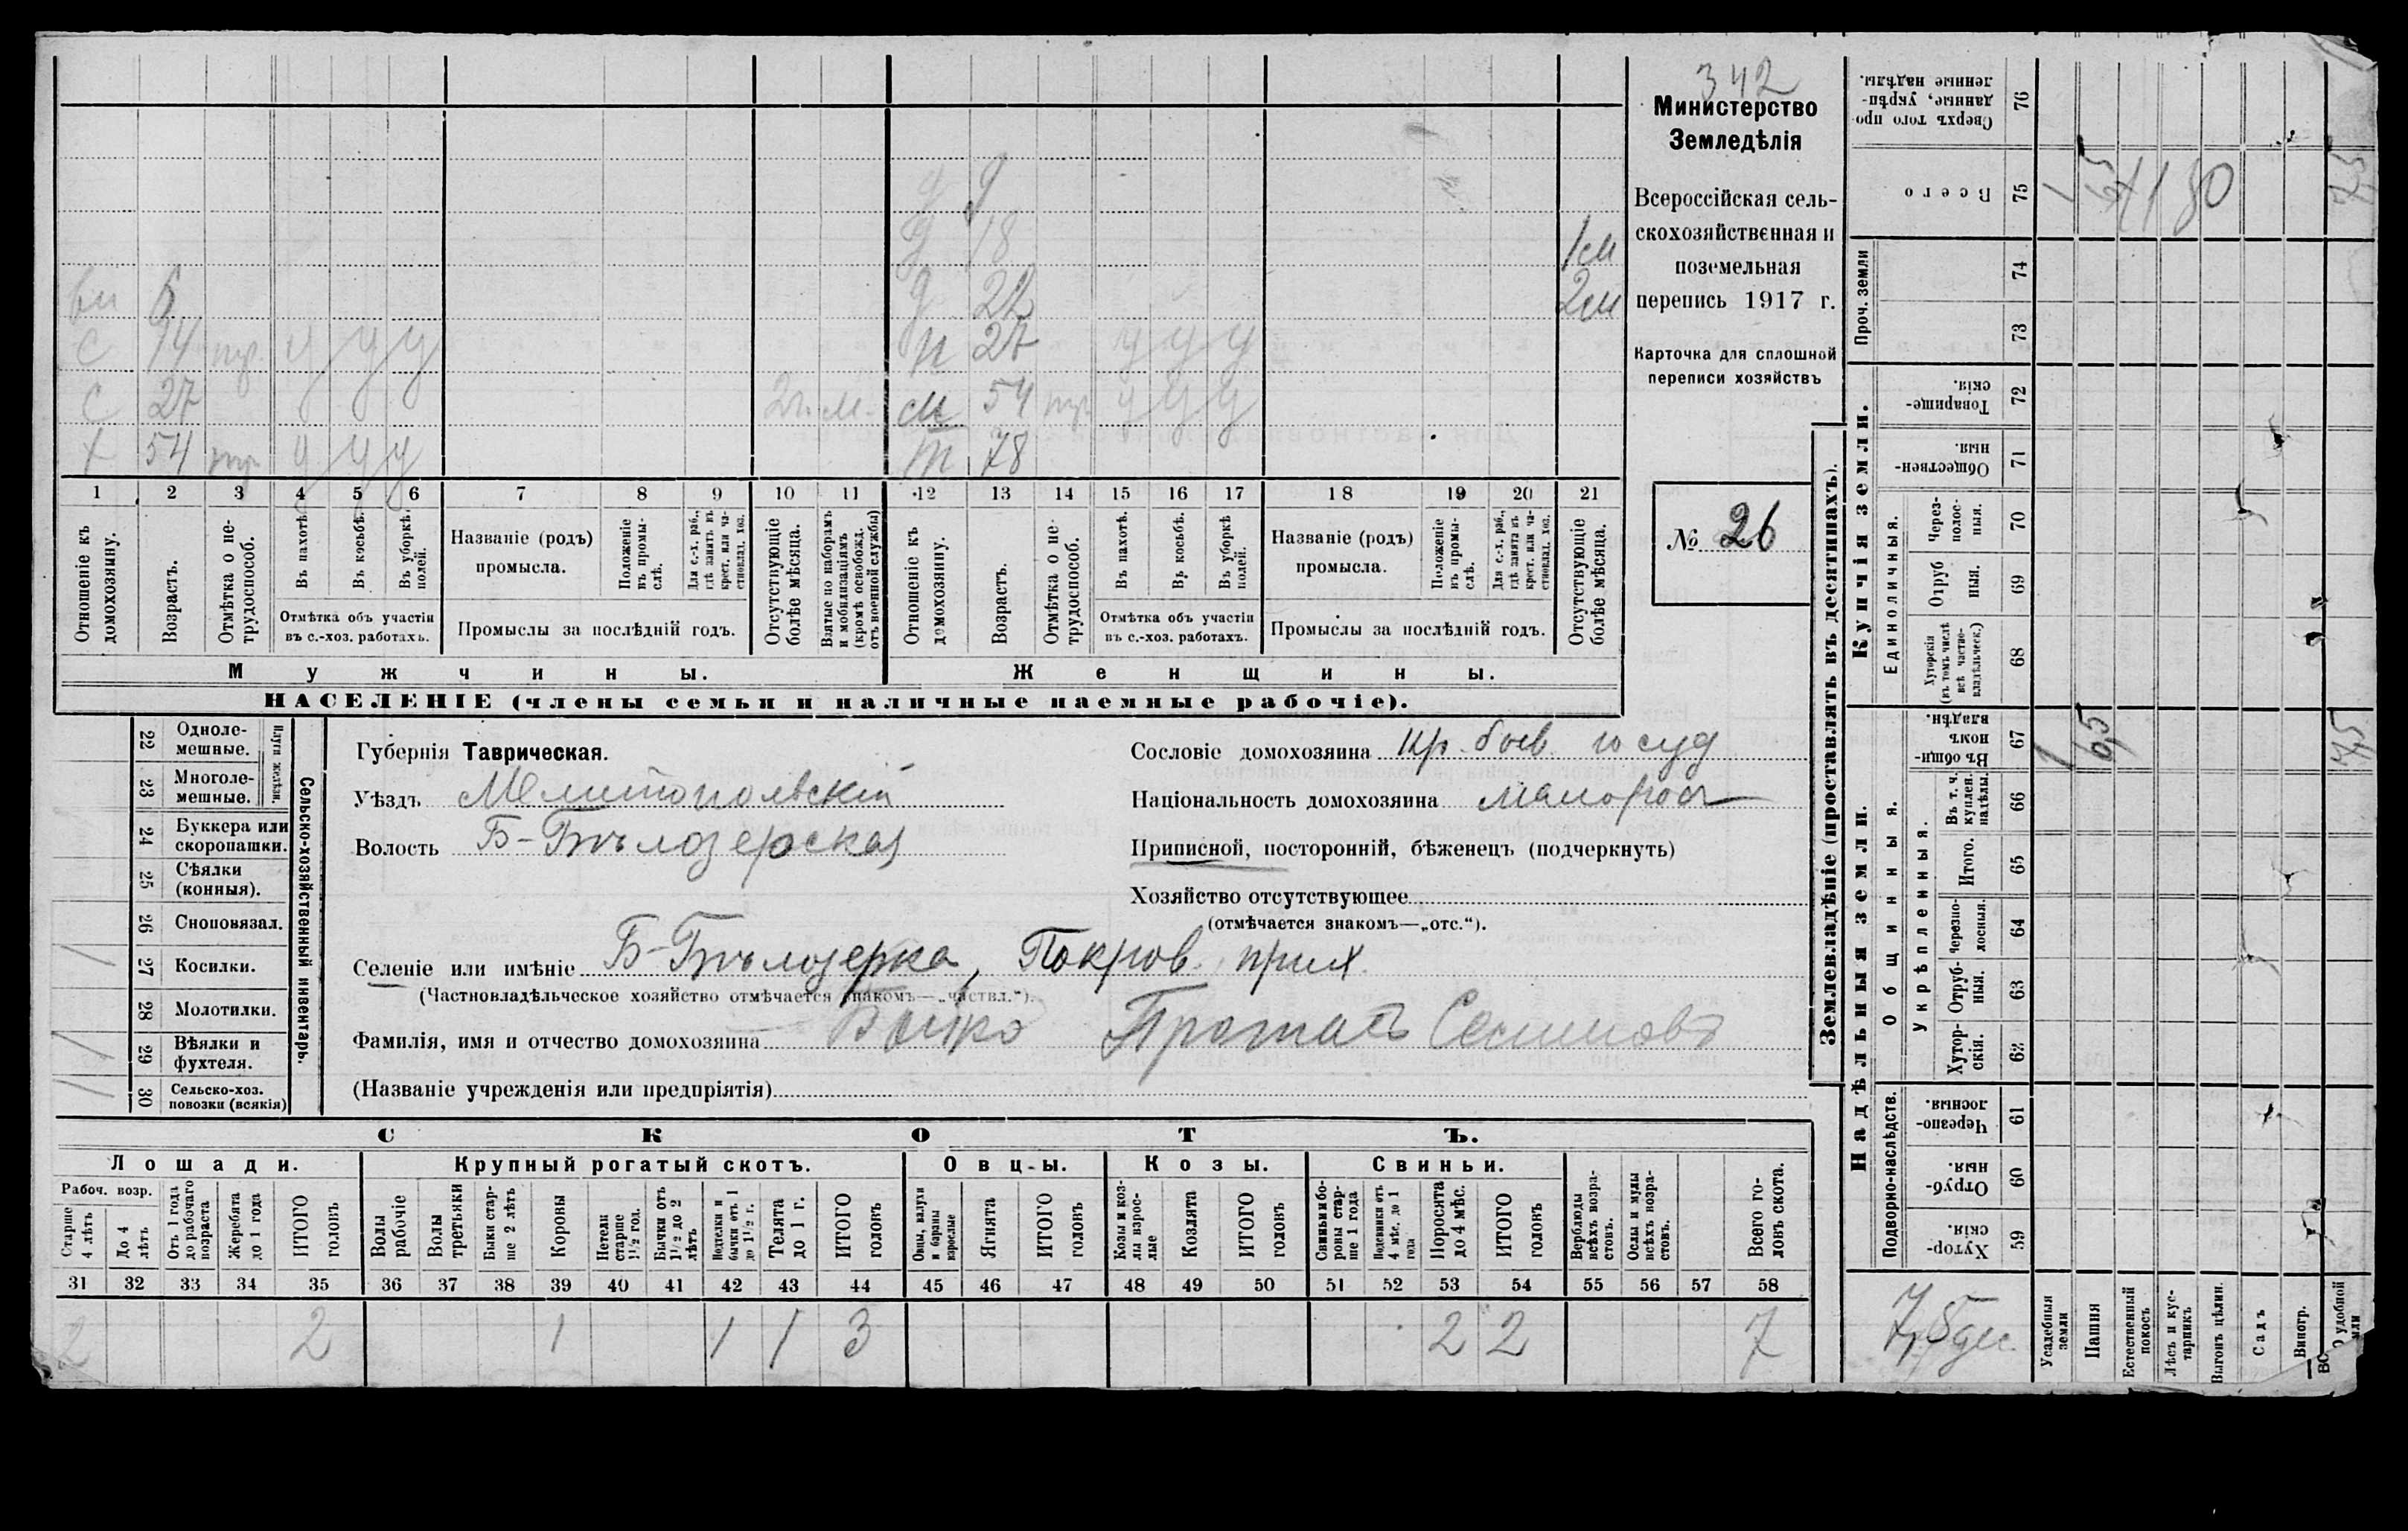 342
Министерство
Земледѣлія
Всероссійская сель-
скохозяйственная и
поземельная
перепись 1917 г.
Карточка для сплошной
переписи хозяйствъ
№ 26
1м
2м
вн 6
с 14 у у у
с 27 2г. м.
х 54 у у у
д 9
д 18
д 22
н 27 у у у
м 54 у у у
м 78
1 2 3 4 5 6 7 8 9 10 11 12 13 14 15 16 17 18 19 20 21
Отношеніе къ домохозяину.
Возрастъ.
Отмѣтка о не-трудоспособ.
Въ пахотѣ.
Въ косьбѣ.
Въ уборкѣ полей.
Отмѣтка объ участіи въ с.-хоз. работахъ.
Названіе (родъ) промысла.
Положеніе въ промы-слѣ.
Для с.-х. раб., гдѣ занятъ въ крест. или ча-стновлад. хоз.
Промыслы за послѣдній годъ.
Отсутствующіе болѣе мѣсяца.
Взятые по наборамъ и мобилизаціямъ (кромѣ освобожд. отъ военной службы)
Отношеніе къ домохозяину.
Возрастъ.
Отмѣтка о не-трудоспособ.
Въ пахотѣ.
Въ косьбѣ.
Въ уборкѣ полей.
Отмѣтка объ участіи въ с.-хоз. работахъ.
Названіе (родъ) промысла.
Положеніе въ промы-слѣ.
Для с.-х. раб., гдѣ занята въ крест. или ча-стновлад. хоз.
Промыслы за послѣдній годъ.
Отсутствующіе болѣе мѣсяца.
Мужчины.
Женщины.
НАСЕЛЕНІЕ (члены семьи и наличные наемные рабочіе).
Сельско-хозяйственный инвентарь.
Плуги желѣзн.
22 Одноле-мешные.
23 Многоле-мешные.
24 Буккера или скоропашки.
25 Сѣялки (конныя).
26 Сноповязал.
27 Косилки. 1
28 Молотилки.
29 Вѣялки и фухтеля. 1/1
30 Сельско-хоз. повозки (всякія) 1/1
Губернія Таврическая.
Уѣздъ Мелитопольскій
Волость Б-Бѣлозерская
Сословіе домохозяина кр. быв. госуд
Національность домохозяина малоросъ
Приписной, посторонній, бѣженецъ (подчеркнуть)
Хозяйство отсутствующее
(отмѣчается знакомъ—„отс.“).
Селеніе или имѣніе Б-Бѣлозерка, Покров. прих.
(Частновладѣльческое хозяйство отмѣчается знакомъ—„частвл.“).
Фамилія, имя и отчество домохозяина Бойко Протасъ Семиновъ
(Названіе учрежденія или предпріятія)
СКОТЪ.
Лошади.
Крупный рогатый скотъ.
Овцы.
Козы.
Свиньи.
Рабоч. возр.
Старше 4 лѣтъ
До 4 лѣтъ
Отъ 1 года до рабочаго возраста
Жеребята до 1 года
ИТОГО головъ
Волы рабочіе
Волы третьяки
Быки стар-ше 2 лѣтъ
Коровы
Нетели старше 1½ год.
Бычки отъ 1½ до 2 лѣтъ
Подтелки и бычки отъ 1 до 1½ г.
Телята до 1 г.
ИТОГО головъ
Овцы, валухи и бараны взрослые
Ягнята
ИТОГО головъ
Козы и коз-лы взрос-лые
Козлята
ИТОГО головъ
Свиньи и бо-ровы стар-ше 1 года
Подсвинки отъ 4 мѣс. до 1 года
Поросята до 4 мѣс.
ИТОГО головъ
Верблюды всѣхъ возра-стовъ.
Ослы и мулы всѣхъ возра-стовъ.
Всего го-ловъ скота.
31 32 33 34 35 36 37 38 39 40 41 42 43 44 45 46 47 48 49 50 51 52 53 54 55 56 57 58
2 2 1 1 1 3 2 2 7
Землевладѣніе (проставлять въ десятинахъ).
Надѣльныя земли.
Купчія земли.
Проч. земли
Подворно-наслѣдств.
Общинныя.
Укрѣпленныя.
Единоличныя.
76 Сверхъ того про-данные, укрѣп-ленные надѣлы.
75 Всего 1 6,5 80 7,5
74
73
72 Товарище-скія.
71 Обществен-ныя.
70 Через-полос-ныя.
69 Отруб ныя.
68 Хуторскія (въ томъ числѣ всѣ частно-владѣльческ.)
67 Въ общи-номъ владѣн. 1 6,5 7,5
66 Въ т. ч. куплен. надѣлы.
65 Итого.
64 Черезпо-лосныя.
63 Отруб-ныя.
62 Хутор-скія.
61 Черезпо-лосныя.
60 Отруб-ныя.
59 Хутор-скія.
7,5 дес.
Усадебныя земли
Пашня
Естественный покосъ
Лѣсъ и кус-тарникъ
Выгонъ цѣлин.
Садъ
Виногр.
удобной